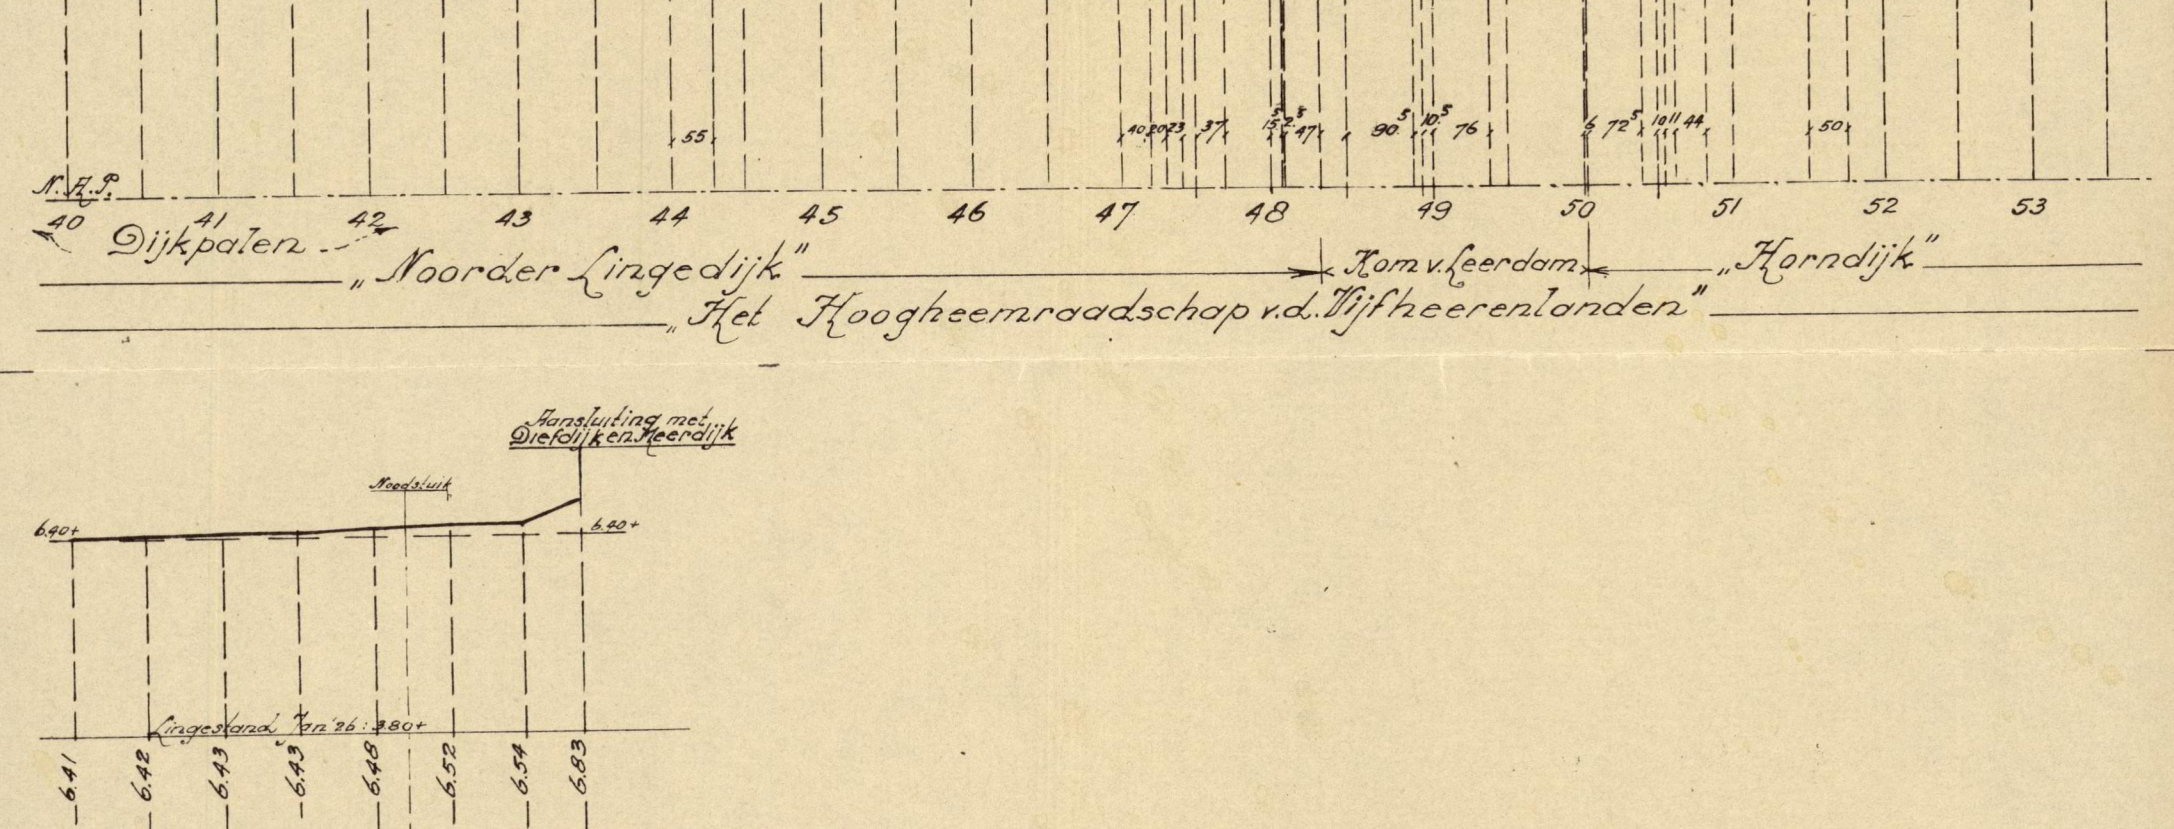 55 40 20 23 37 15⁵ 2⁵ 47 90⁵ 10⁵ 76 6 72⁵ 10 11 44 50
N.A.P.
40 41 42 43 44 45 46 47 48 49 50 51 52 53
Dijkpalen
„Noorder Lingedijk" Kom v. Leerdam „Horndijk"
„Het Hoogheemraadschap v.d. Vijfheerenlanden"
Aansluiting met
Diefdijk en Meerdijk
Noodsluik
6.40+ 6.40+
Lingestand Jan '26: 3.80+
6.41 6.42 6.43 6.43 6.48 6.52 6.54 6.83